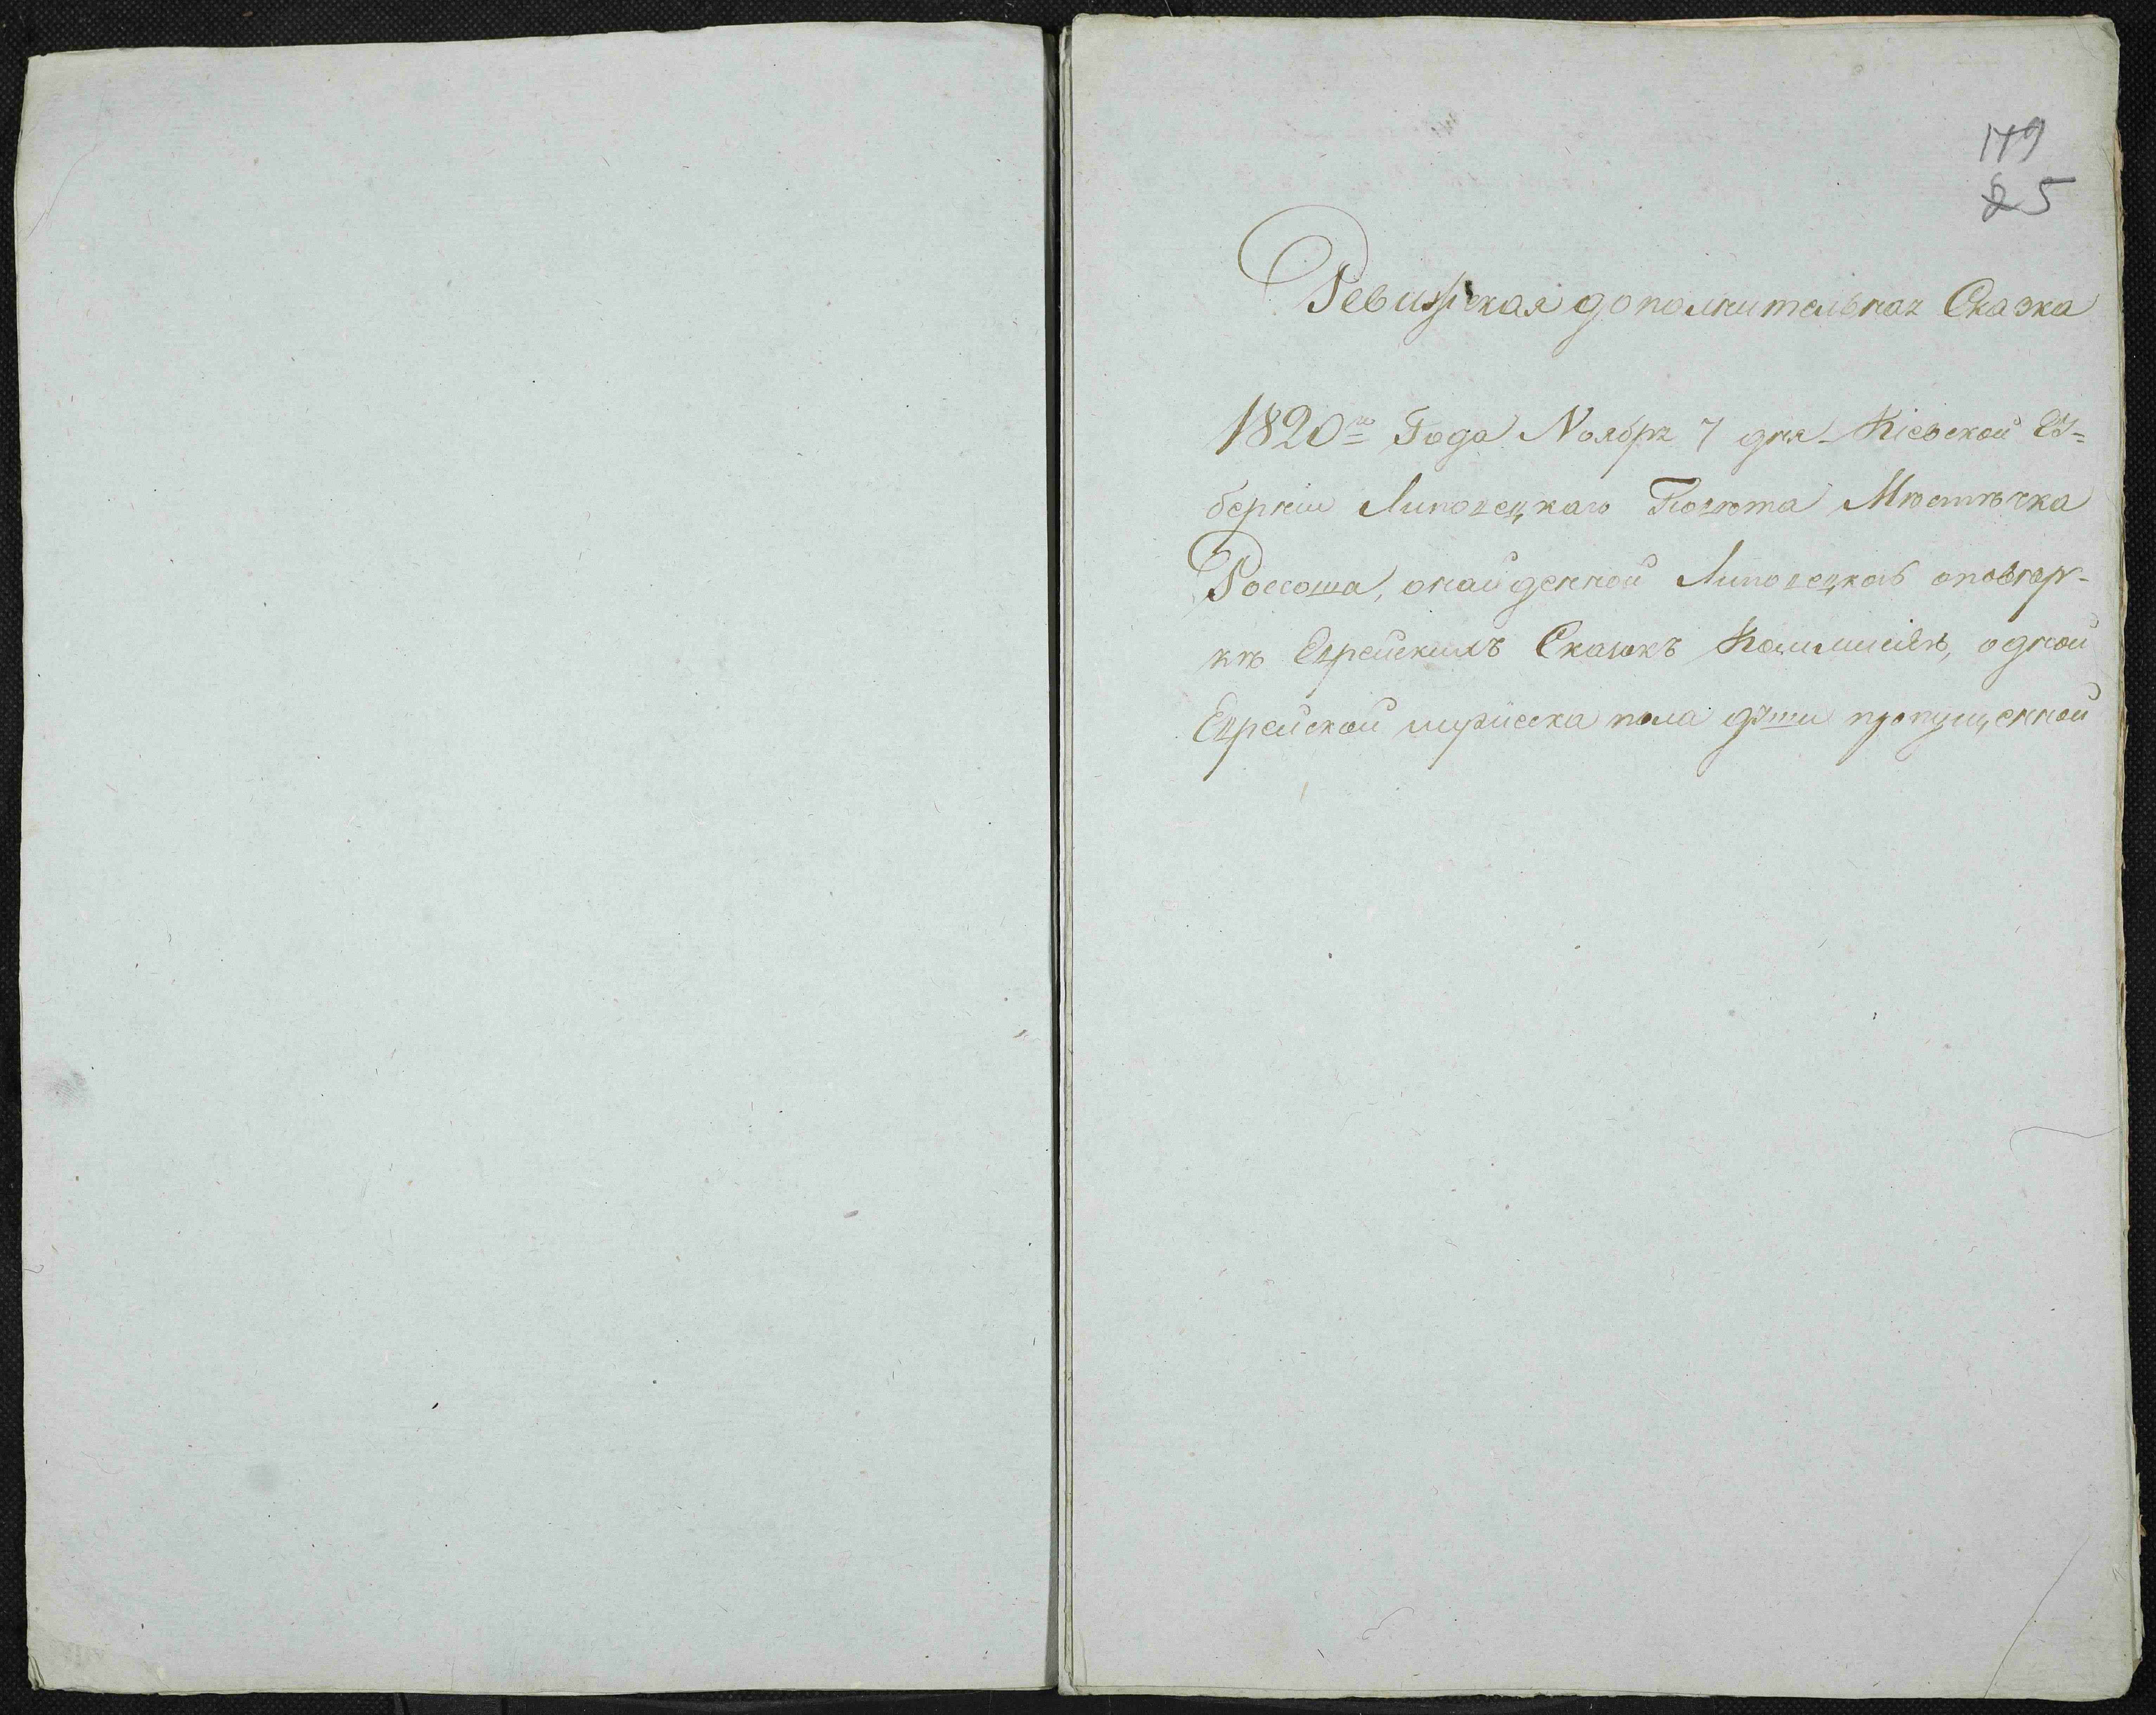 179
25
Ревизская дополнительная Сказка
1820го Года Ноября 7 дня Кіевской Гу=
берніи Липовецкаго Повѣта Мѣстѣчка
Россоша, онайденной Липовецкой оповѣр-
кѣ Еврейскихъ Сказокъ Коммисіѣю, одной
Еврейской мужеска пола души пропущенной